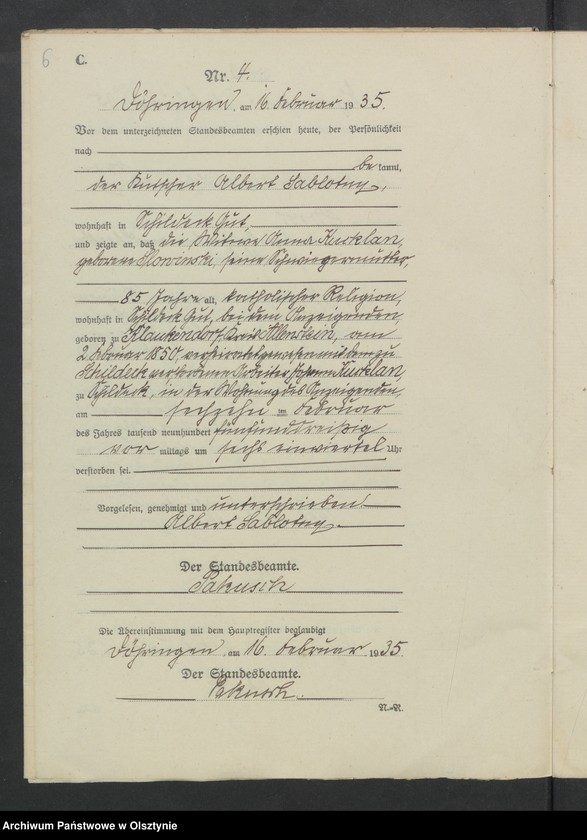 6
C.
Nr. 4.
Döhringen, am 16. Februar 1935.
Vor dem unterzeichneten Standesbeamten erschien heute, der Persönlichkeit
nach
be kannt,
der Kutscher Albert Sablotny,
wohnhaft in Schildeck Gut,
und zeigte an, daß die Witwe Anna Kurklan,
geborene Slowinski, seine Schwiegermutter,
85 Jahre alt, katholischer Religion,
wohnhaft in Schildeck Gut, bei dem Anzeigenden,
geboren zu Klaukendorf, Kreis Allenstein, am
2. Februar 1850, verheiratet gewesen mit dem zu
Schildeck verstorbenen Arbeiter Johann Kurklan,
zu Schildeck, in der Wohnung des Anzeigenden,
am sechzehn ten Februar
des Jahres tausend neunhundert fünfunddreißig
vor mittags um sechs einviertel Uhr
verstorben sei.
Vorgelesen, genehmigt und unterschrieben
Albert Sablotny.
Der Standesbeamte.
Sakusch
Die Übereinstimmung mit dem Hauptregister beglaubigt
Döhringen, am 16. Februar 1935.
Der Standesbeamte.
Sakusch.
N.=N.
Archiwum Państwowe w Olsztynie